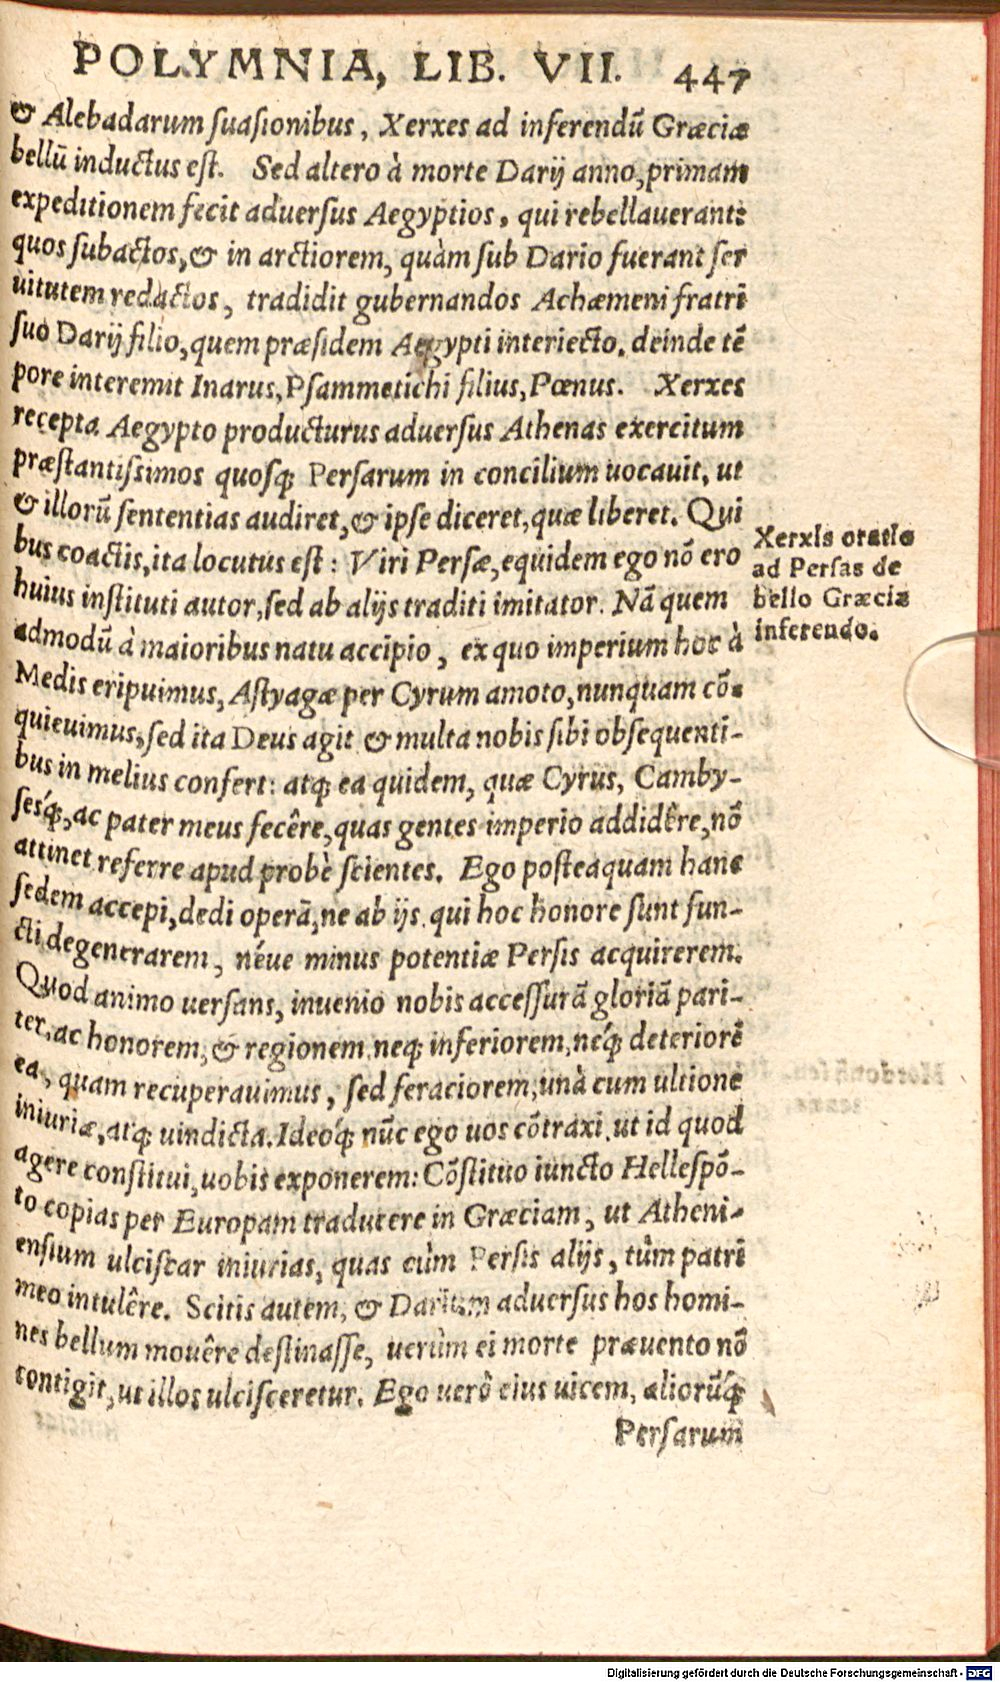 POLYMNIA, LIB. VII. 447
& Alebadarum ſuaſionibus, Xerxes ad inferendū Græciæ
bellū inductus eſt. Sed altero à morte Darij anno, primam
expeditionem fecit aduerſus Aegyptios, qui rebellauerant:
quos ſubactos, & in arctiorem, quàm ſub Dario fuerant ſer
uitutem redactos, tradidit gubernandos Achæmeni fratri
ſuo Darij filio, quem præſidem Aegypti interiecto. deinde tē
pore interemit Inarus, Pſammetichi filius, Pœnus. Xerxes
recepta. Aegypto producturus aduerſus Athenas exercitum
præſtantiſsimos quoſq; Perſarum in concilium uocauit, ut
& illorū ſententias audiret, & ipſe diceret, quæ liberet. Qui
bus coactis, ita locutus eſt: Viri Perſæ, equidem ego nō ero
huius inſtituti autor, ſed ab alijs traditi imitator. Nā quem
admodū à maioribus natu accipio, ex quo imperium hoc à
Medis eripuimus, Aſtyagæ per Cyrum amoto, nunquam cō-
quieuimus, ſed ita Deus agit & multa nobis ſibi obſequenti-
bus in melius confert: atq; ea quidem, quæ Cyrus, Camby-
ſesq́;, ac pater meus fecêre, quas gentes imperio addidêre, nō
attinet referre apud probè ſcientes. Ego poſteaquam hanc
ſedem accepi, dedi operā, ne ab ijs. qui hoc honore ſunt fun-
cti, degenerarem, néue minus potentiæ Perſis acquirerem.
Quod animo uerſans, inuenio nobis acceſſurā gloriā pari-
ter, ac honorem, & regionem, neq; inferiorem, néq; deteriorē
ea, quam recuperauimus, ſed feraciorem, unà cum ultione
iniuriæ, atq; uindicta. Ideoq́; nūc ego uos cōtraxi, ut id quod
agere conſtitui, uobis exponerem: Cōſtituo iuncto Helleſpō-
to copias per Europam traducere in Græciam, ut Atheni-
enſium ulciſcar iniurias, quas cùm Perſis alijs, tùm patri
meo intulêre. Scitis autem, & Darium aduerſus hos homi-
nes bellum mouêre deſtinaſſe, uerùm ei morte præuento nō
contigit, ut illos ulciſceretur. Ego uerò eius uicem, aliorūq́;
Perſarum
Xerxis oratio
ad Perſas de
bello Græciæ
inferendo.
Digitalisierung gefördert durch die Deutsche Forschungsgemeinschaft - DFG